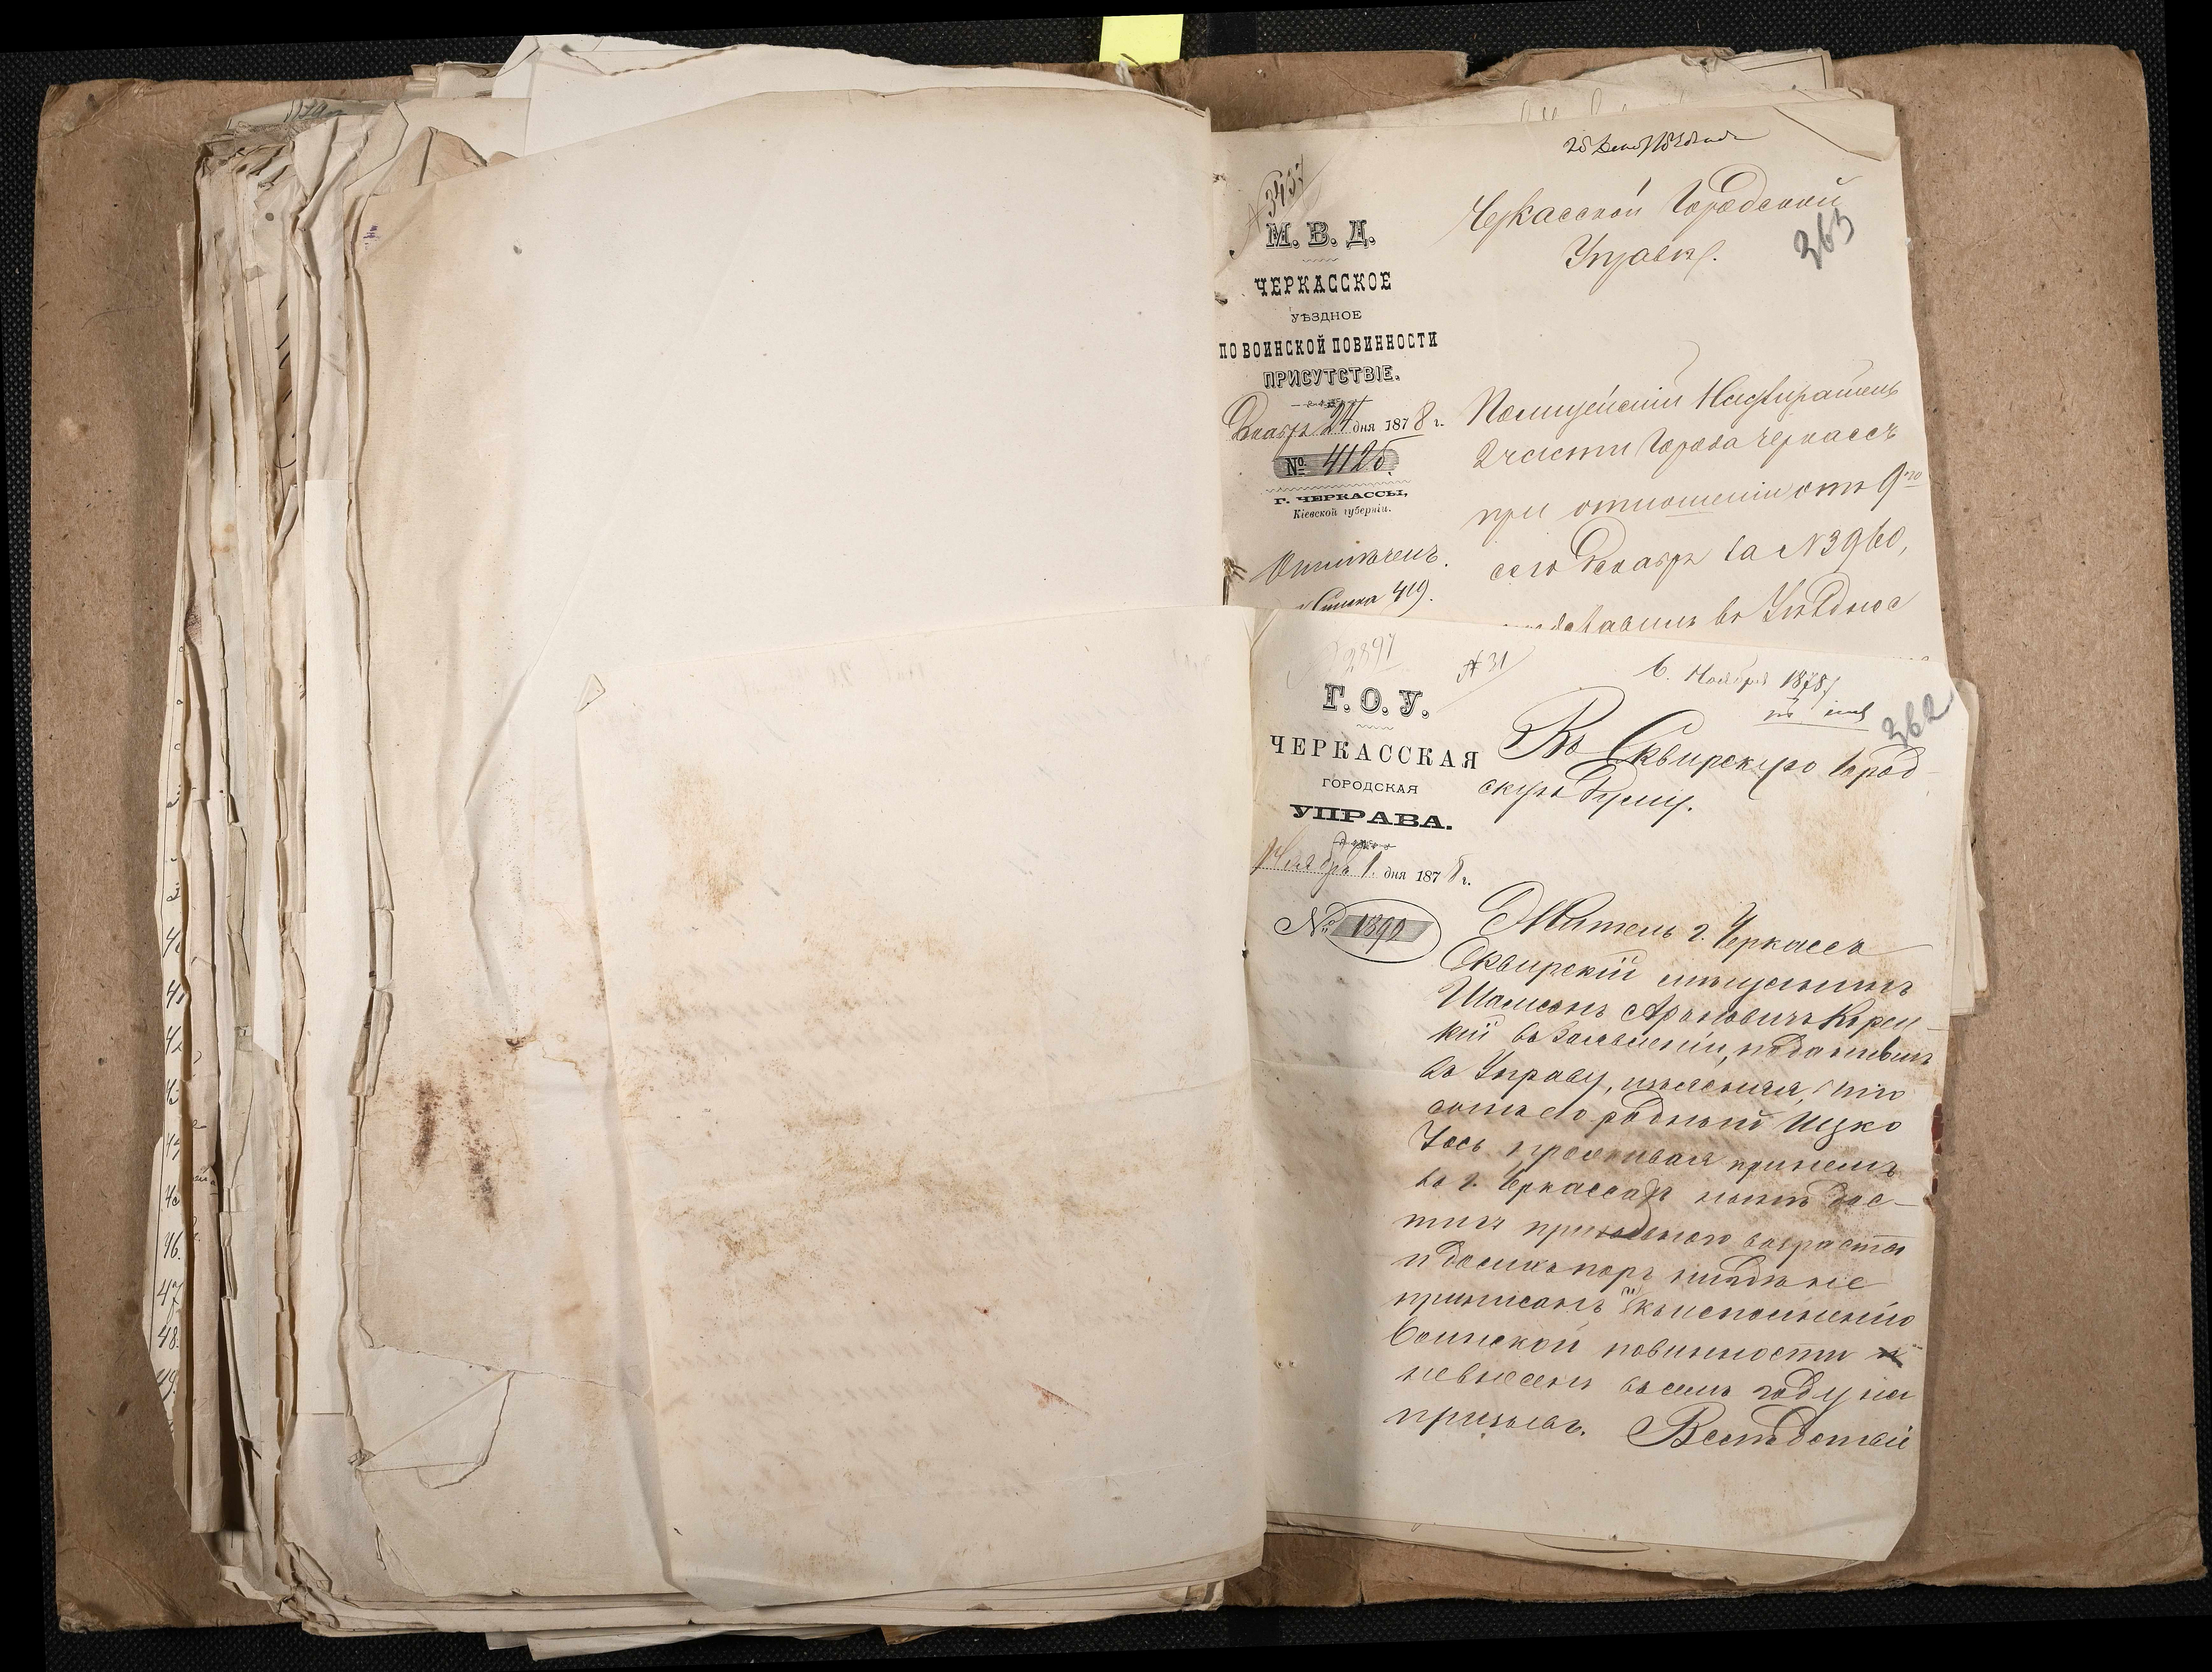 25 Декаб. 1878 года
№ 3437
М. В. Д.
ЧЕРКАССКОЕ
УѢЗДНОЕ
ПО ВОИНСКОЙ ПОВИННОСТИ
ПРИСУТСТВІЕ.
Декабря 24 дня 1878 г.
№ 4126.
Г. ЧЕРКАССЫ,
Кіевской губерніи.
Списка 419.
Черкасской Городской
Управѣ.
363
Полицейскій Надзиратель
2 части города Черкассъ
при отношеніи отъ 9го
сего Декабря за №3960,
представилъ въ Уѣздное
2897
№ 31
6. Ноября 1878
362
Г. О. У.
ЧЕРКАССКАЯ
ГОРОДСКАЯ
УПРАВА.
Ноября 1. дня 1878 г.
№ 1392
Въ Сквирскую Город-
скую Думу.
Житель г. Черкассъ
Сквирскій мѣщанинъ
Шамсонъ Ароновичъ Корси-
кій въ заявленіи, поданномъ
въ Управу, изъяснилъ, что
сынъ его родный Ицко
Іось проживая при немъ
въ г. Черкассахъ нынѣ дос-
тигъ призывнаго возраста
и до сихъ поръ нигдѣ не
приписанъ къ исполненію
воинской повинности и
невнесенъ въ семъ году на
призывъ. Вслѣдствіе